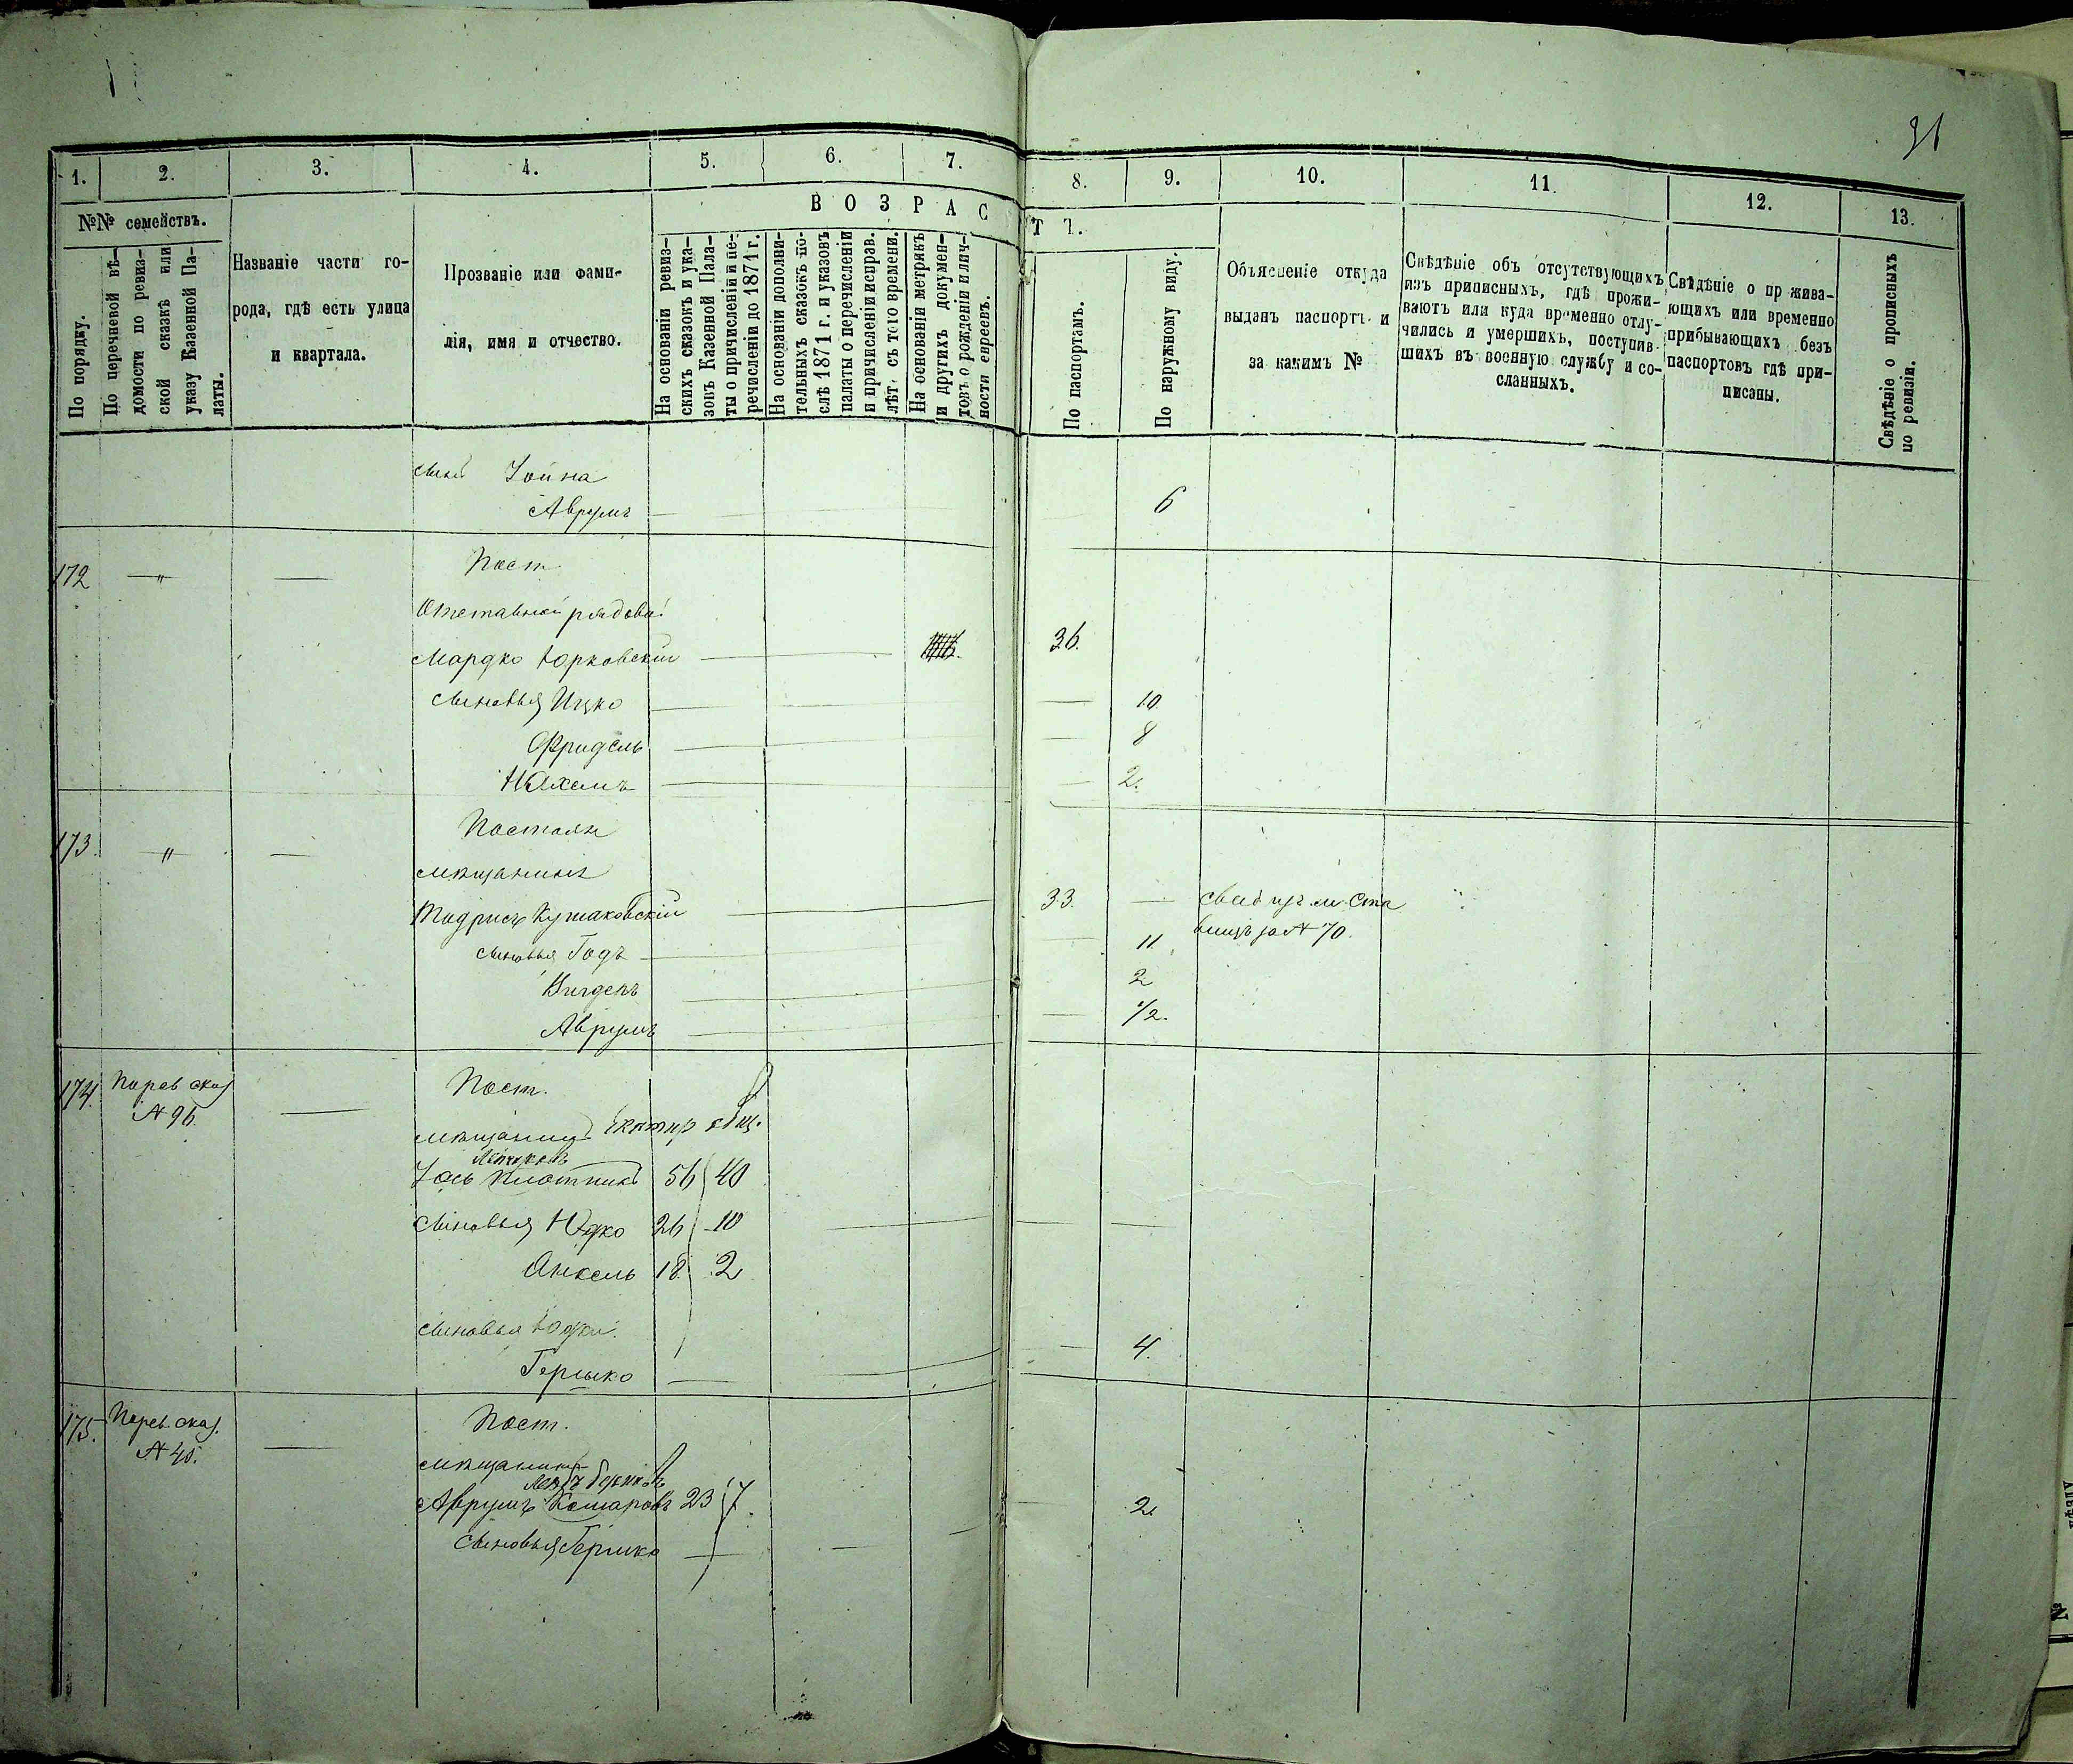 91
1. 2. 3. 4. 5. 6. 7. 8. 9. 10. 11. 12. 13.
№№ семействъ.
По порядку.
По перечневой вѣ-
домости по ревиз-
ской сказкѣ или
указу Казенной Па-
латы.
Названіе части го-
рода, гдѣ есть улица
и квартала.
Прозваніе или фами-
лія, имя и отчество.
ВОЗРАСТЪ.
На основаніи ревиз-
скихъ сказокъ и ука-
зовъ Казенной Пала-
ты о причисленіи и пе-
речисленіи до 1871 г.
На основаніи дополни-
тельныхъ сказокъ по-
слѣ 1871 г. и указовъ
палаты о перечисленіи
и причисленіи исправ.
лѣт. съ того времени.
На основаніи метрикъ
и другихъ докумен-
товъ о рожденіи и лич-
ности евреевъ.
По паспортамъ.
По наружному виду.
Объясненіе откуда
выданъ паспортъ и
за какимъ №
Свѣдѣніе объ отсутствующихъ
изъ приписныхъ, гдѣ прожи-
ваютъ или куда временно отлу-
чились и умершихъ, поступив-
шихъ въ военную службу и со-
сланныхъ.
Свѣдѣніе о прожива-
ющихъ или временно
прибывающихъ безъ
паспортовъ гдѣ при-
писаны.
Свѣдѣніе о прописныхъ
по ревизіи.
сынъ Іойна
Аврумъ 6
172 — " — Пост.
Отставной рядовой
Мордко Юрковскій 36.
сыновья Ицко 10
Фридель 8
Нахемъ 2.
173. — " — Постоян
мѣщанинъ
Кутаковскій 33. — свид. изъ м. Ста
вищъ за № 70.
сыновья Годъ 11
2
Аврумъ 1/2.
174. По рев. сказ. — Пост.
№ 96.
мѣщанинъ
Іось Плотникъ 56 40
сыновья Юдко 26 10
Анкель 18 2
сыновья Юдки.
Гершко 4.
175. По рев. сказ. — Пост.
№ 40.
мѣщанинъ
Аврумъ Комаровъ 23 7
сыновья Гершко 2